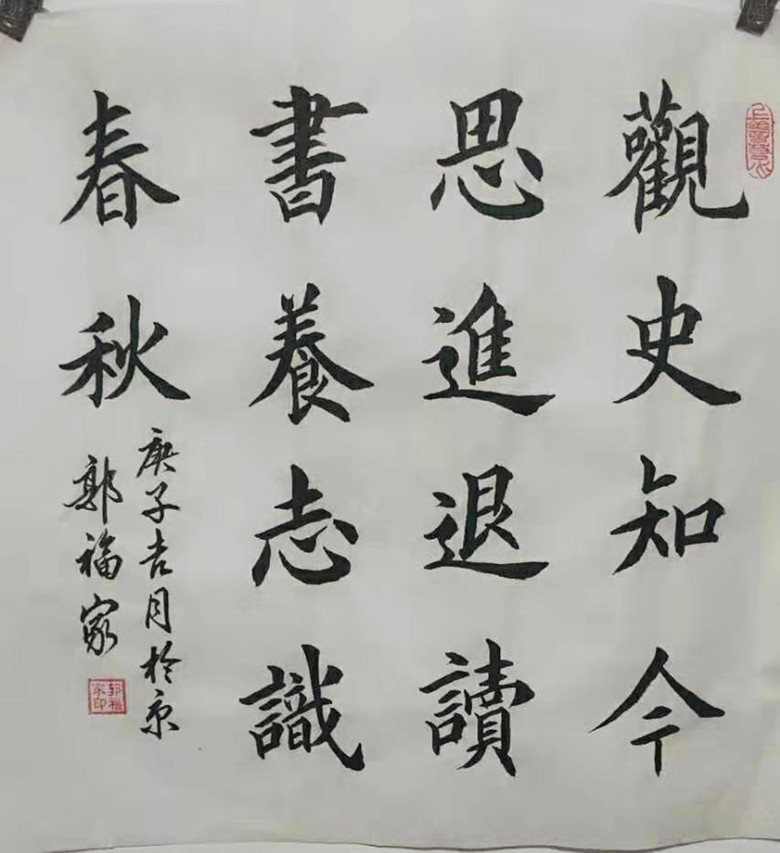 觀史知今
思進退讀
書養志識
春秋
庚子吉月於京
郭福家
上善若水
郭福家印